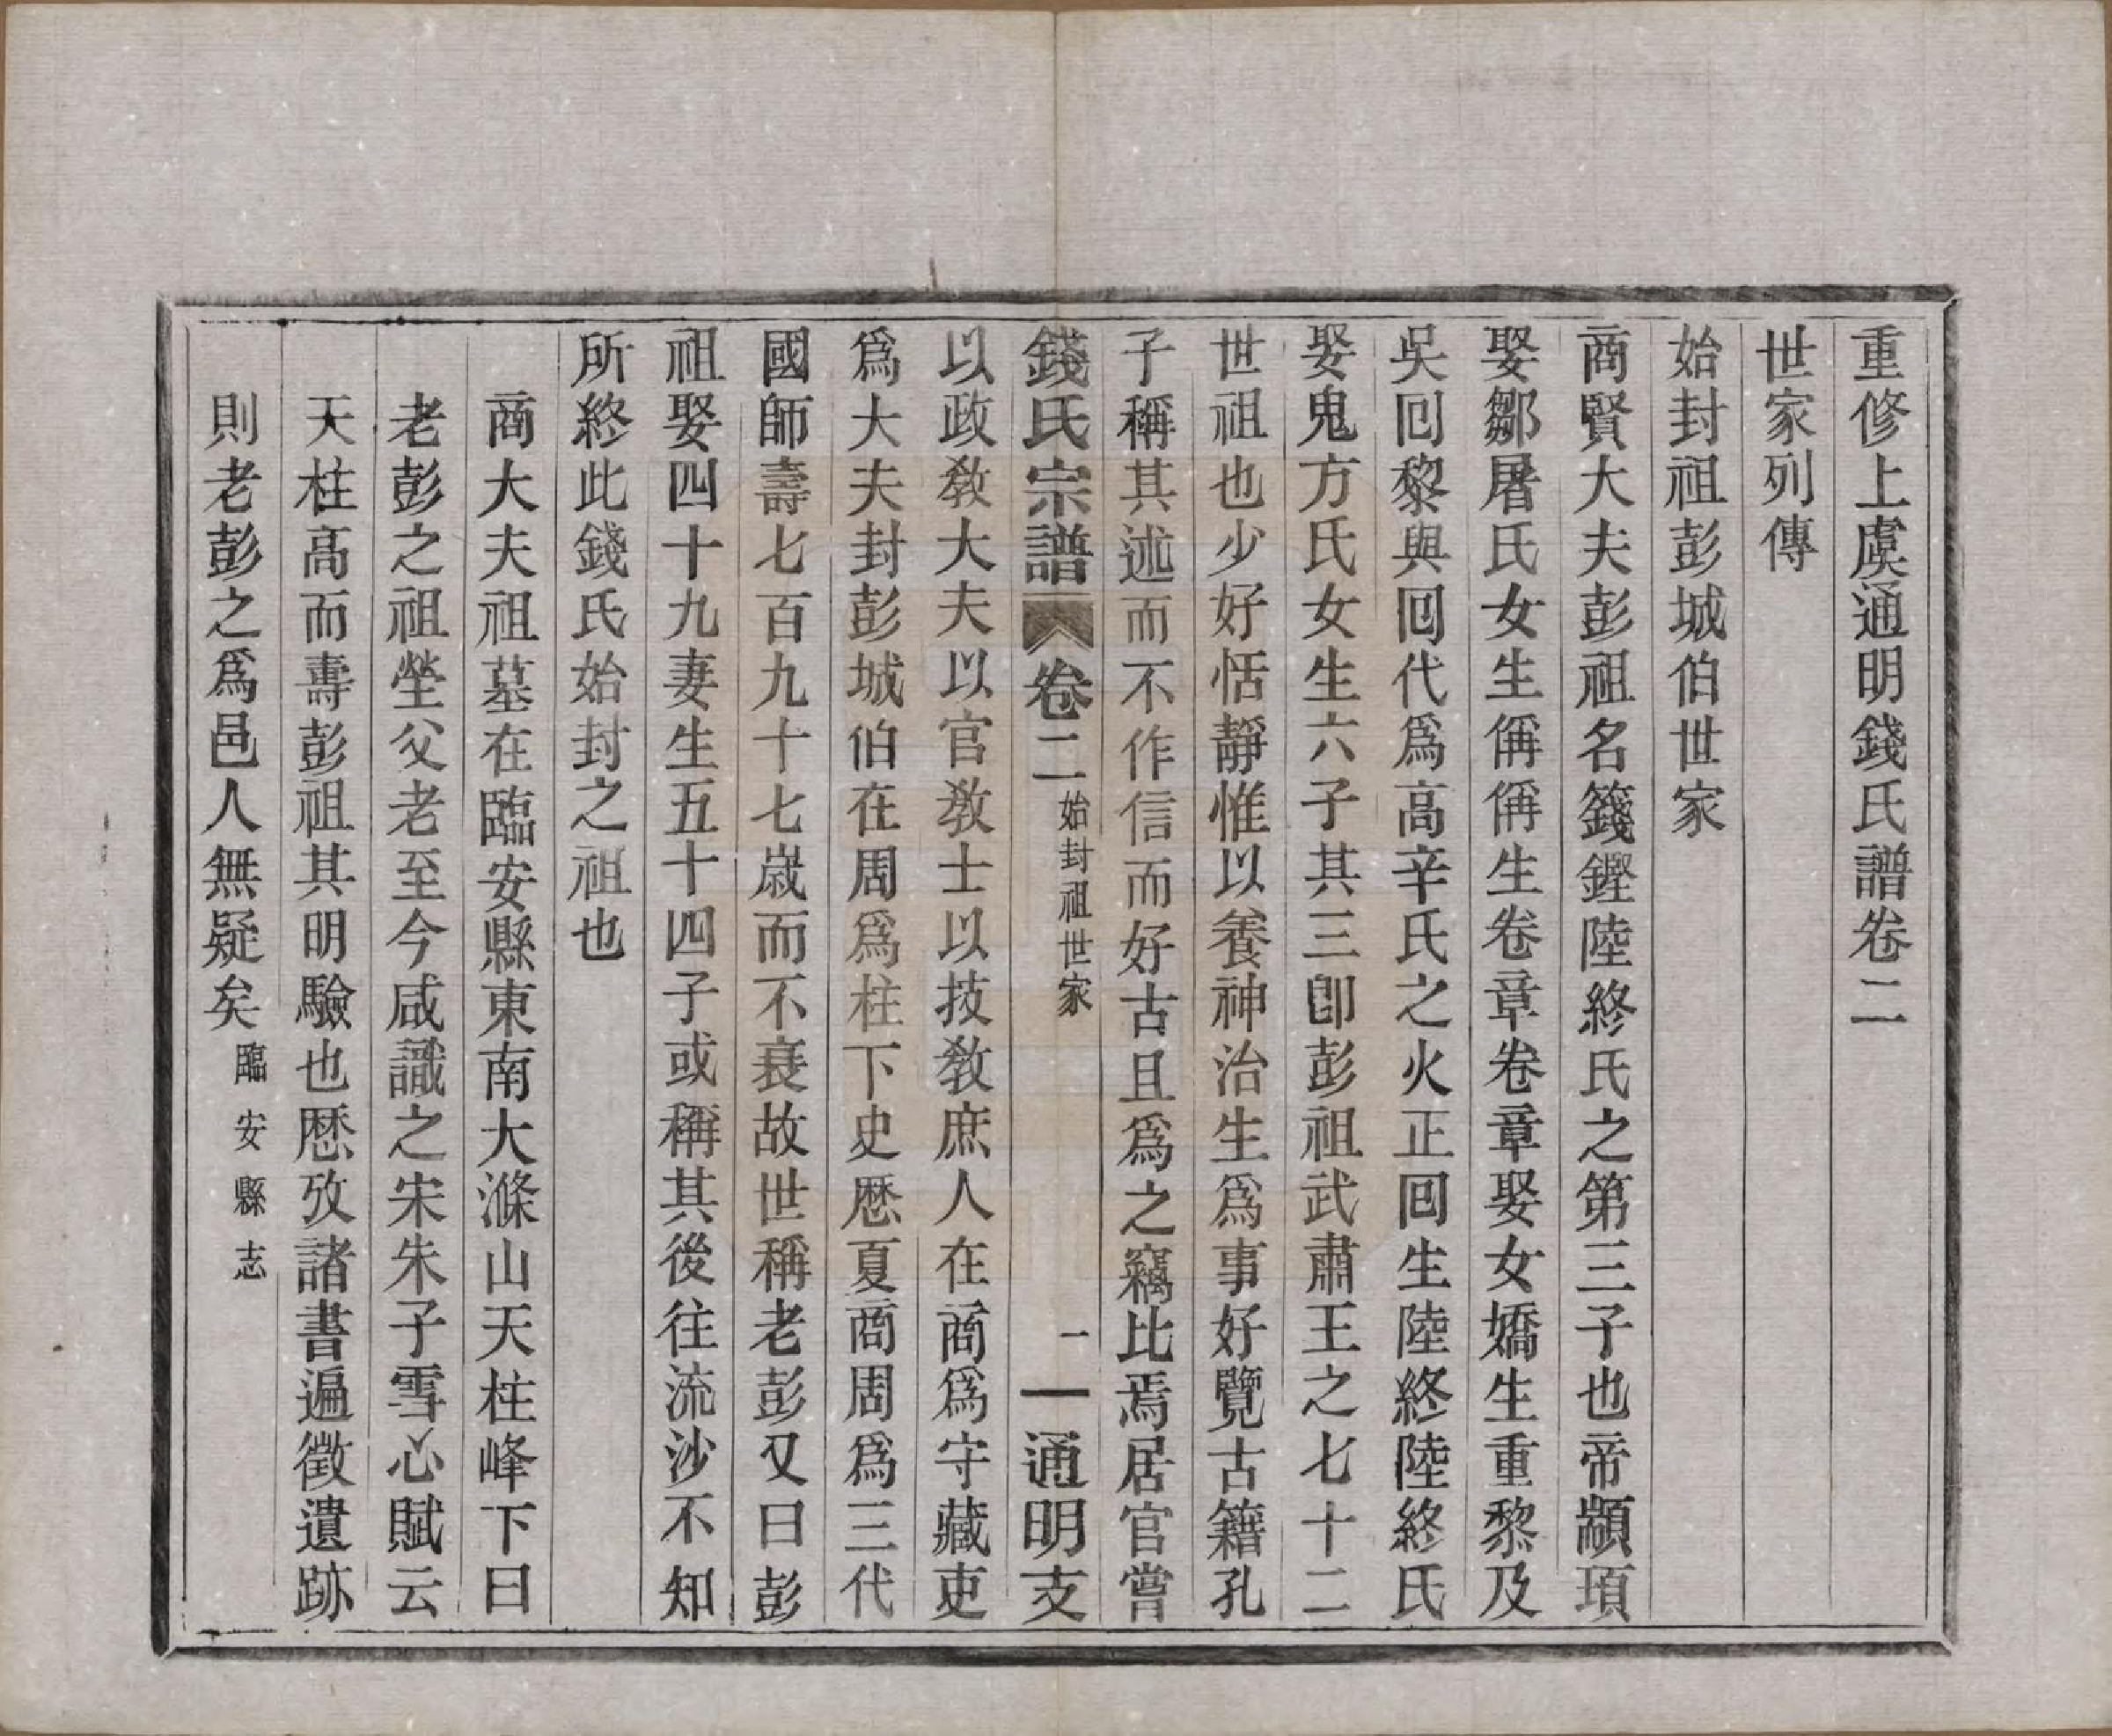 重修上虞通明錢氏譜卷二
世家列傳
始封祖彭城伯世家
商賢大夫彭祖名籛鏗陸終氏之第三子也帝顓頊
娶鄒屠氏女生偁偁生卷章卷章娶女嬌生重黎及
吳回黎與回代爲高辛氏之火正回生陸終陸終氏
娶鬼方氏女生六子其三卽彭祖武肅王之七十二
世祖也少好恬靜惟以養神治生爲事好覽古籍孔
子稱其述而不作信而好古且爲之竊比焉居官嘗
錢氏宗譜 卷二 始封祖世家 一 通明支
以政敎大夫以官敎士以技敎庶人在商爲守藏吏
爲大夫封彭城伯在周爲柱下史歷夏商周爲三代
國師壽七百九十七歲而不衰故世稱老彭又曰彭
祖娶四十九妻生五十四子或稱其後往流沙不知
所終此錢氏始封之祖也
商大夫祖墓在臨安縣東南大滌山天柱峰下曰
老彭之祖塋父老至今咸識之宋朱子雪心賦云
天柱高而壽彭祖其明驗也歷攷諸書遍徵遺跡
則老彭之爲邑人無疑矣 臨安縣志